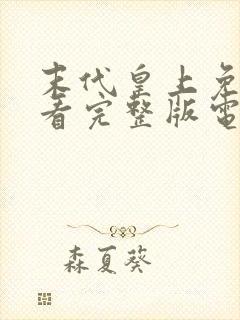 末代皇上免
看完整版電
森夏葵